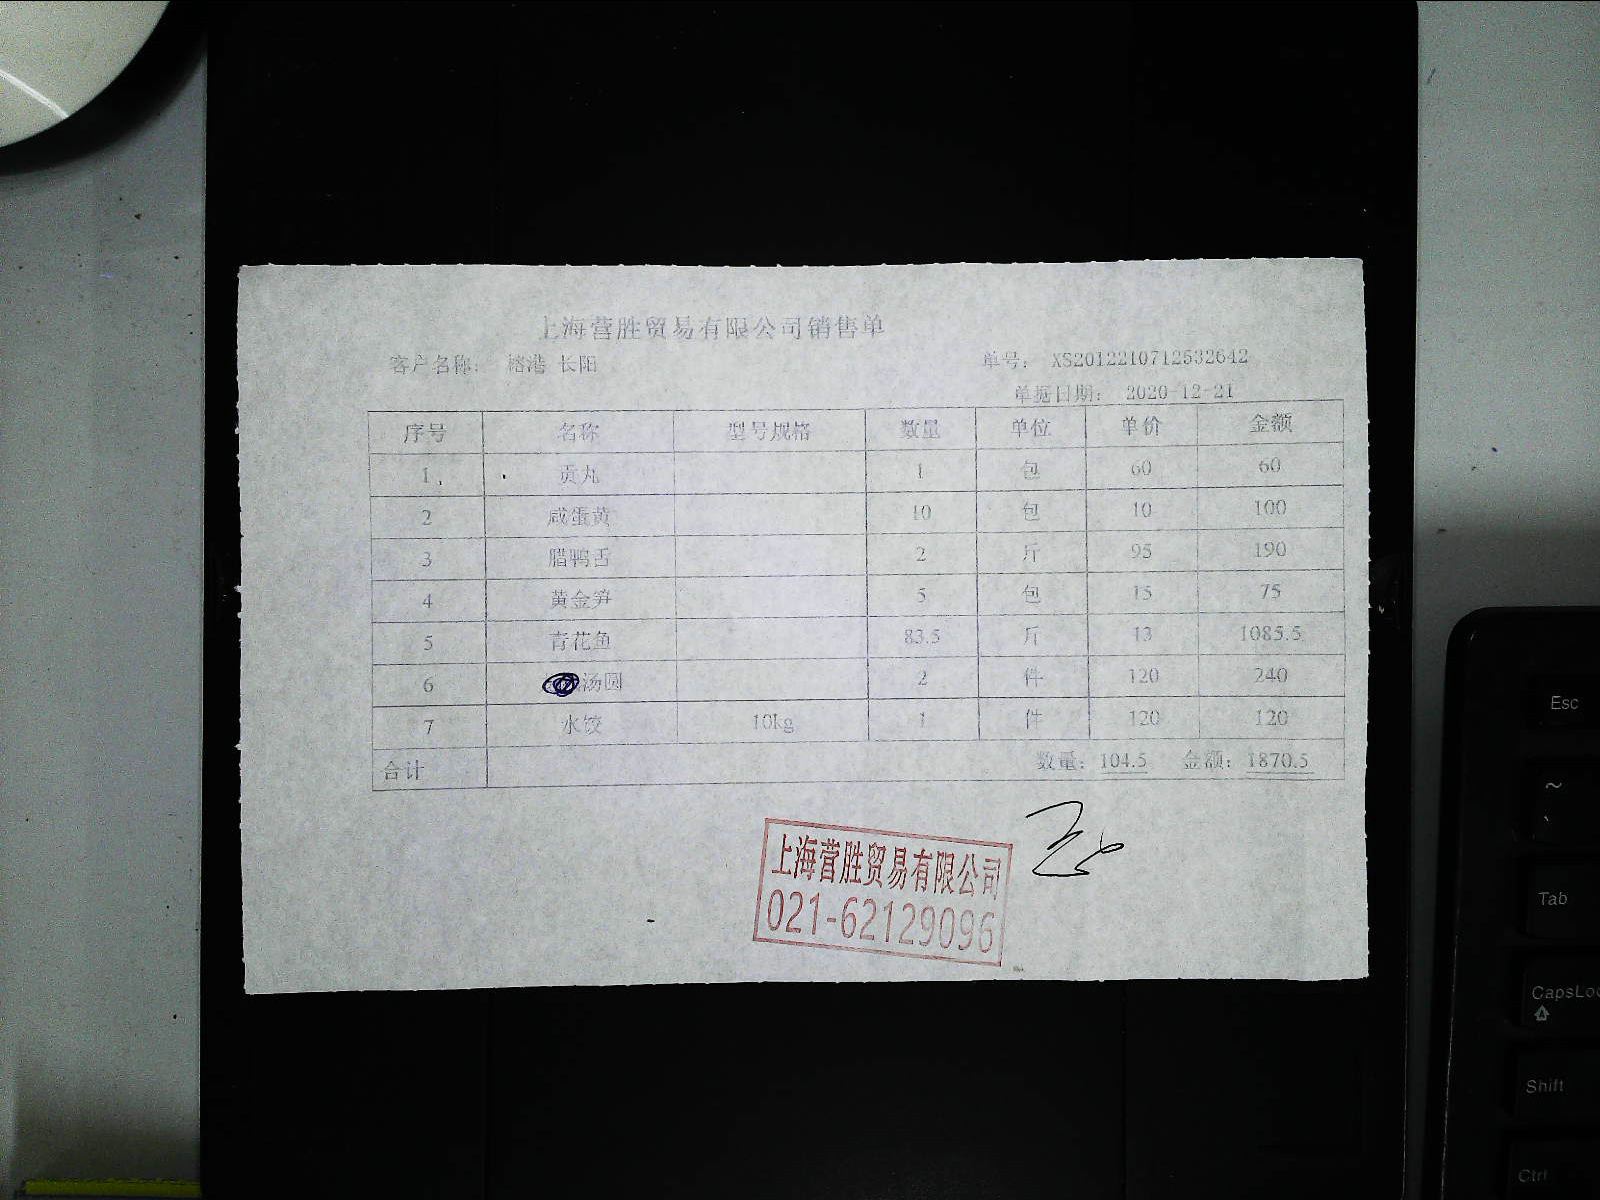 上海营胜贸易有限公司销售单
客户名称: 榕港 长阳 单号: XS2012210712532642
单据日期: 2020-12-21
序号 名称 型号规格 数量 单位 单价 金额
1 贡丸 1 包 60 60
2 咸蛋黄 10 包 10 100
3 腊鸭舌 2 斤 95 190
4 黄金笋 5 包 15 75
5 青花鱼 83.5 斤 13 1085.5
6 汤圆 2 件 120 240
7 水饺 10kg 1 件 120 120
合计 数量: 104.5 金额: 1870.5
上海营胜贸易有限公司
021-62129096
Esc
~
Tab
CapsLoc
Shift
Ctrl